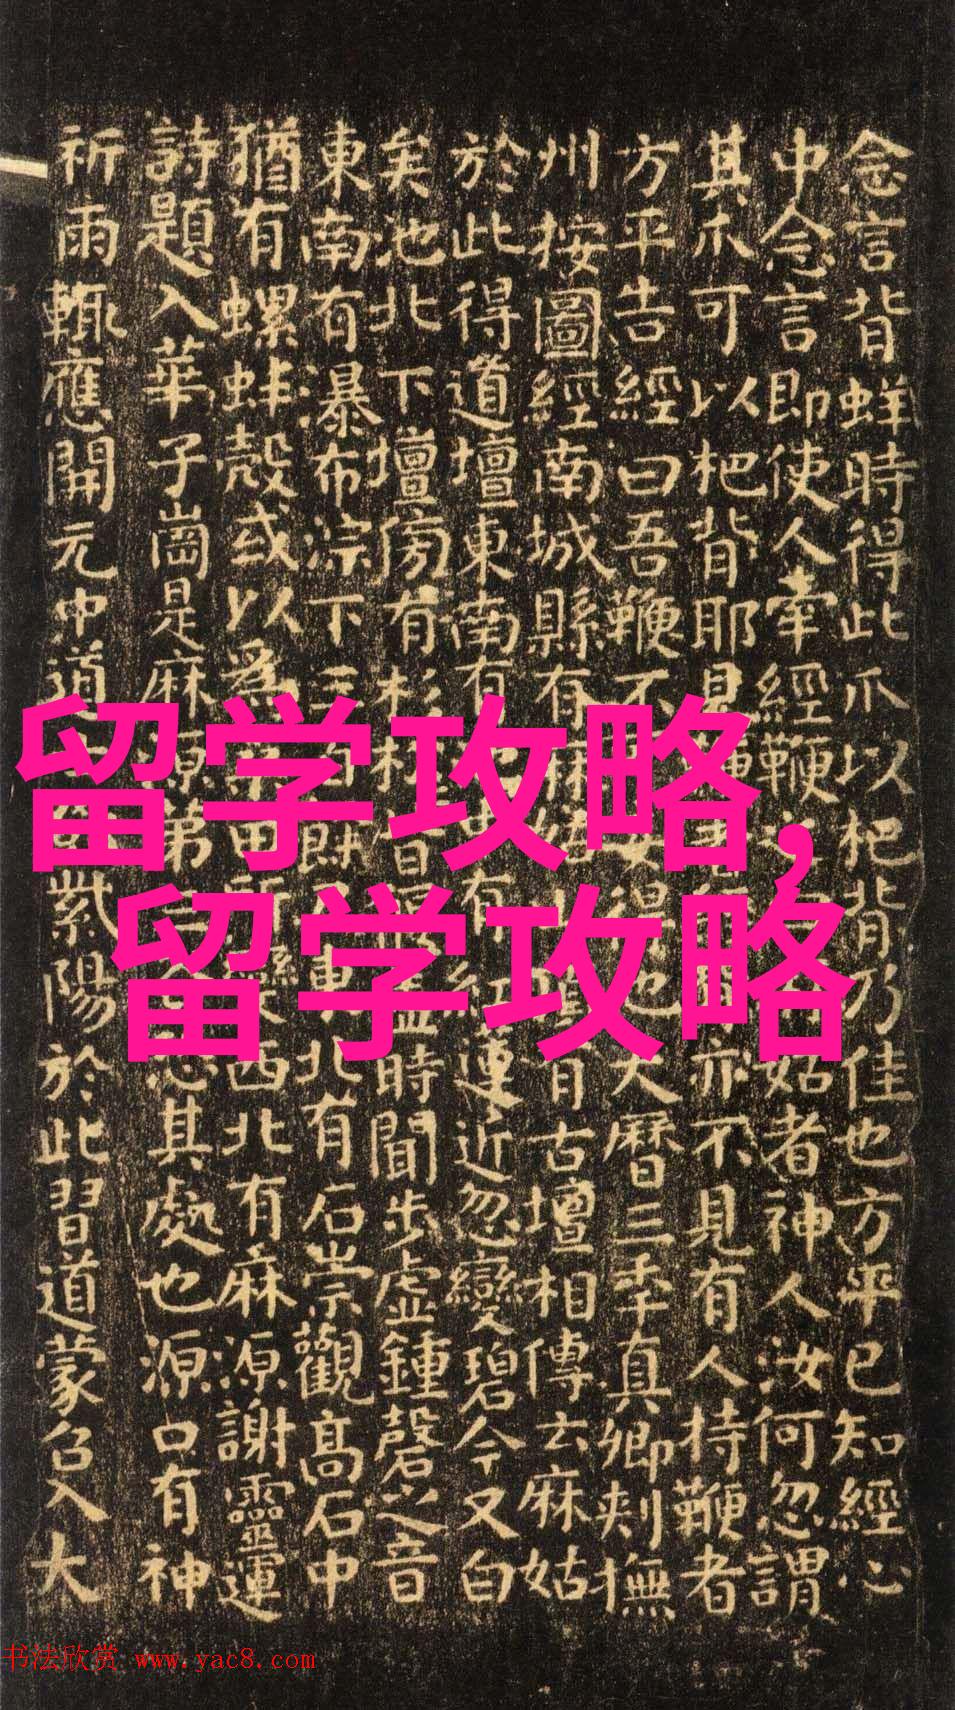 念言背蛘時得此爪以杷背乃佳也方平已知經心
中念言即使人牽經鞭之姑者神人汝何忽謂
其爪可以杷背耶見亦不見有人持鞭者
方平告經曰吾鞭不得也大曆三年真卿刾撫
州按圖經南城縣有麻姑山頂有古壇相傳云麻姑
於此得道壇東南有池中有紅蓮近忽變碧今又白
矣池北下壇傍有杉松皆偃蓋時聞步虛鍾磬之音
東南有瀑布淙下三百餘尺東北有石崇觀高石中
猶有螺蚌殼或以為桑田所變西北有麻源謝靈運
詩題入華子崗是麻源第三谷恐其處也源口有神
祈雨輒應開元中道紫陽於此習道蒙召入大
留学攻略,
留学攻略
书法欣赏 www.yac8.com